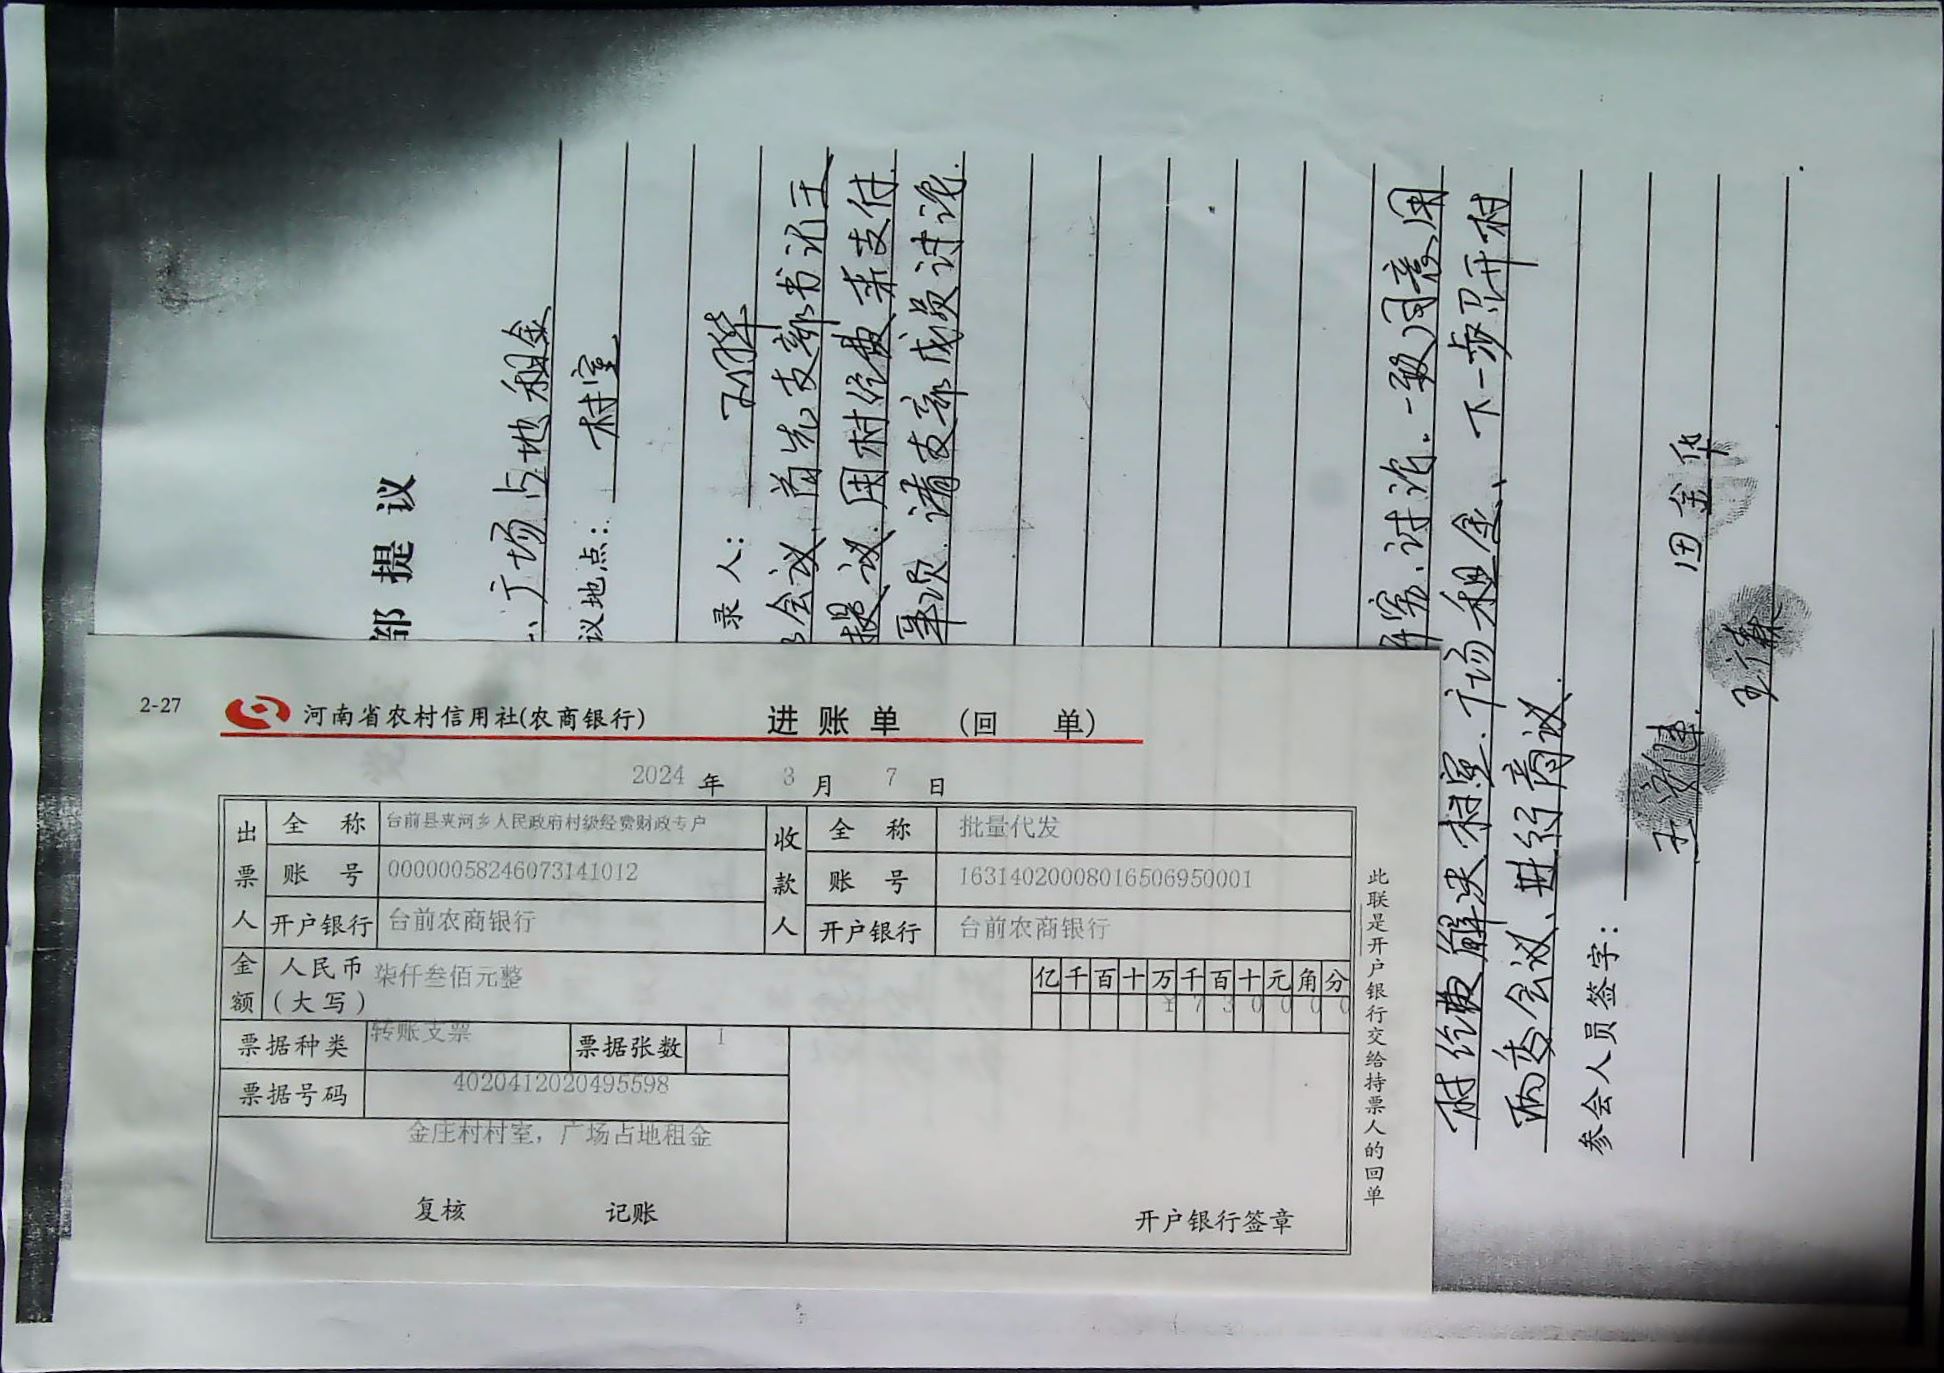 部提议
广场占地租金
议地点： 村室
录人：
会议，首先支部书记王
提议，用村经费来支付
事项，请支部成员讨论。
讨论，一致同意用
村经费解决村室、广场租金，下一步召开村
两委会议，进行商议。
参会人员签字：
田金华
2-27 河南省农村信用社(农商银行) 进账单 (回 单)
2024 年 3 月 7 日
出票人 全 称 台前县夹河乡人民政府村级经费财政专户 收款人 全 称 批量代发
账 号 00000058246073141012 账 号 16314020008016506950001
开户银行 台前农商银行 开户银行 台前农商银行
金额 人民币(大写) 柒仟叁佰元整 亿千百十万千百十元角分
¥730000
票据种类 转账支票 票据张数 1
票据号码 4020412020495598
金庄村村室，广场占地租金
复核 记账 开户银行签章
此联是开户银行交给持票人的回单